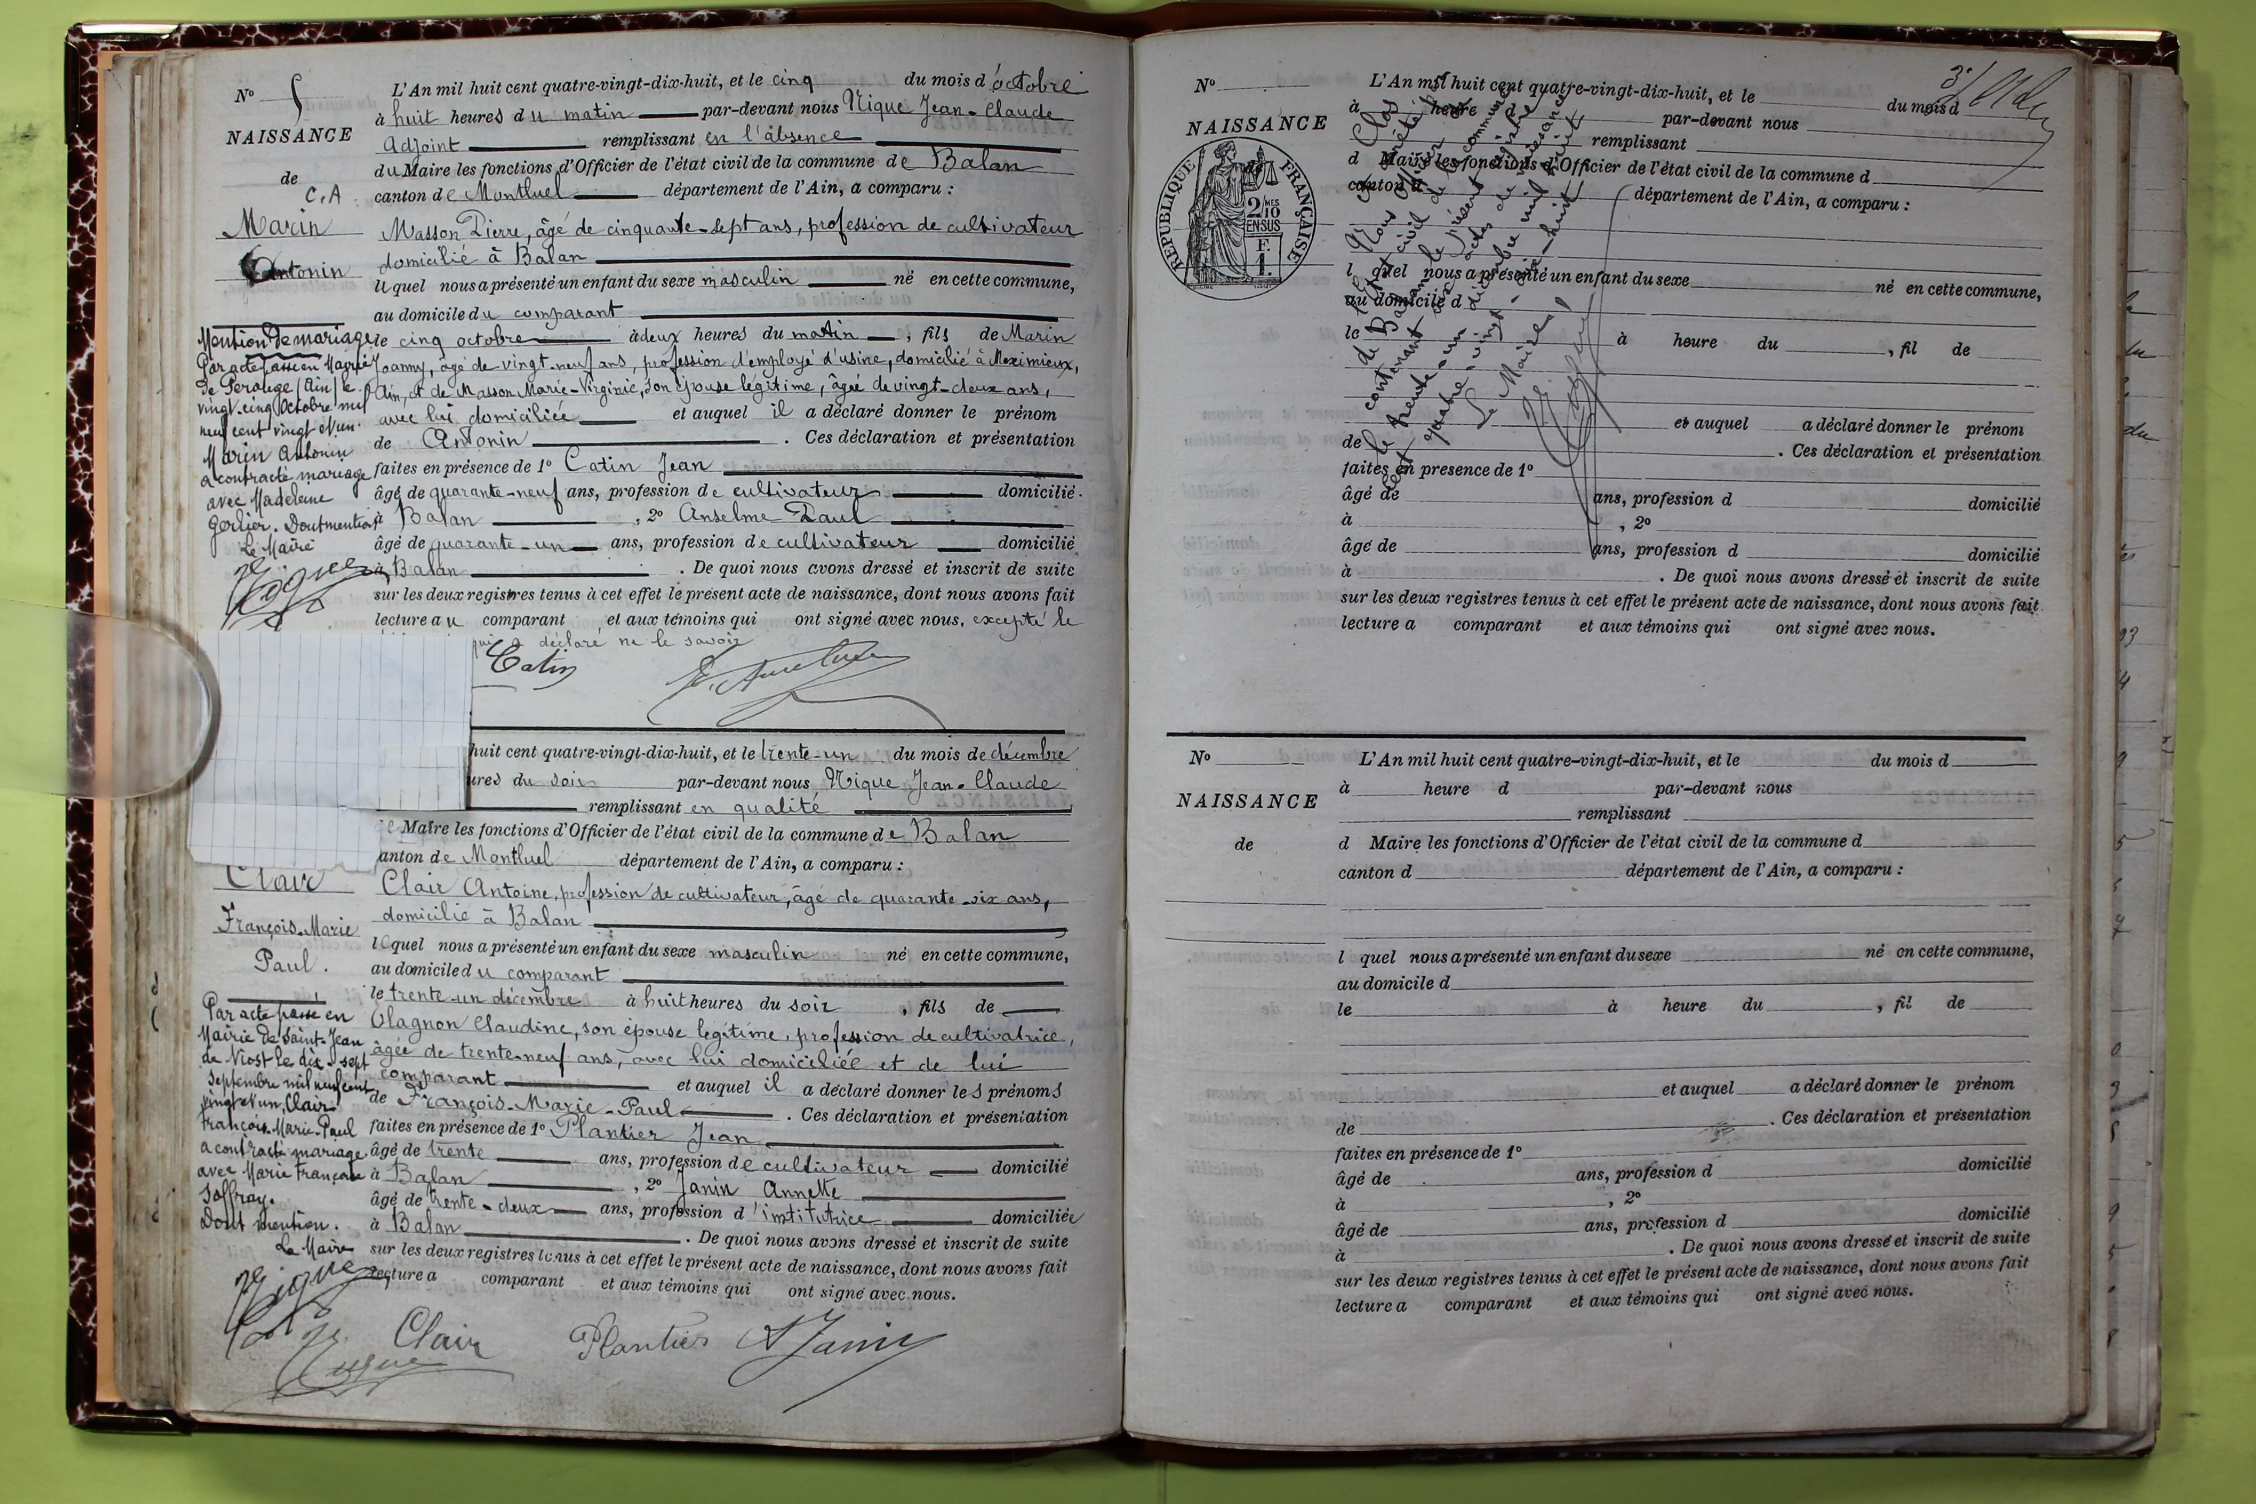 N° 5
NAISSANCE
de
C. A
Marin
Antonin
L'An mil huit cent quatre-vingt-dix-huit, et le cinq du mois d'octobre
à huit heures du matin par-devant nous Nique Jean-Claude
adjoint remplissant en l'absence
du Maire les fonctions d'Officier de l'état civil de la commune de Balan
canton de Montluel département de l'Ain, a comparu :
Masson Pierre, âgé de cinquante-sept ans, profession de cultivateur
domicilié à Balan
lequel nous a présenté un enfant du sexe masculin né en cette commune,
au domicile du comparant
le cinq octobre à deux heures du matin, fils de Marin
Joanny, âgé de vingt-neuf ans, profession d'employé d'usine, domicilié à Meximieux,
Ain, et de Masson Marie-Virginie, son épouse légitime, âgée de vingt-deux ans,
avec lui domiciliée et auquel il a déclaré donner le prénom
de Antonin . Ces déclaration et présentation
faites en présence de 1° Catin Jean
âgé de quarante-neuf ans, profession de cultivateur domicilié
à Balan , 2° Anselme Paul
âgé de quarante-un ans, profession de cultivateur domicilié
à Balan . De quoi nous avons dressé et inscrit de suite
sur les deux registres tenus à cet effet le présent acte de naissance, dont nous avons fait
lecture au comparant et aux témoins qui ont signé avec nous, excepté le
déclaré ne le savoir
Catin
Mention de mariage
Par acte passé en Mairie
de Perouge (Ain) le
vingt-cinq Octobre mil
neuf cent vingt et un.
Marin Antonin
a contracté mariage
avec Madeleine
Gerlier. Dont mention
Le Maire
Nique
huit cent quatre-vingt-dix-huit, et le trente-un du mois de décembre
ures du soir par-devant nous Nique Jean-Claude
remplissant en qualité
de Maire les fonctions d'Officier de l'état civil de la commune de Balan
anton de Montluel département de l'Ain, a comparu :
Clair
François-Marie
Paul.
Clair Antoine, profession de cultivateur, âgé de quarante-six ans,
domicilié à Balan
lequel nous a présenté un enfant du sexe masculin né en cette commune,
au domicile du comparant
le trente-un décembre à huit heures du soir , fils de
Olagnon Claudine, son épouse légitime, profession de cultivatrice,
âgée de trente-neuf ans, avec lui domiciliée et de lui
comparant et auquel il a déclaré donner les prénoms
de François-Marie-Paul . Ces déclaration et présentation
faites en présence de 1° Plantier Jean
âgé de trente ans, profession de cultivateur domicilié
à Balan , 2° Janin Annette
âgé de trente-deux ans, profession d'institutrice domiciliée
à Balan . De quoi nous avons dressé et inscrit de suite
sur les deux registres tenus à cet effet le présent acte de naissance, dont nous avons fait
lecture a comparant et aux témoins qui ont signé avec nous.
Par acte passé en
Mairie de Saint-Jean
de Niost le dix-sept
Septembre mil neuf cent
vingt et un, Clair
François-Marie-Paul
a contracté mariage
avec Marie Françoise
Joffray.
Dont mention.
Le Maire
Nique
Clair Plantier A Janin
N°
NAISSANCE
RÉPUBLIQUE FRANÇAISE
2/10 MES
EN SUS
F.
1.
L'An mil huit cent quatre-vingt-dix-huit, et le du mois d
à heure d par-devant nous
remplissant
d Maire les fonctions d'Officier de l'état civil de la commune d
canton d département de l'Ain, a comparu :
l quel nous a présenté un enfant du sexe né en cette commune,
au domicile d
le à heure du , fil de
et auquel a déclaré donner le prénom
de . Ces déclaration et présentation
faites en présence de 1°
âgé de ans, profession d domicilié
à , 2°
âgé de ans, profession d domicilié
à . De quoi nous avons dressé et inscrit de suite
sur les deux registres tenus à cet effet le présent acte de naissance, dont nous avons fait
lecture a comparant et aux témoins qui ont signé avec nous.
Clos
le présent registre
contenant actes de naissance
le trente-un décembre mil huit
cent quatre-vingt-dix-huit
Le Maire
N°
NAISSANCE
de
L'An mil huit cent quatre-vingt-dix-huit, et le du mois d
à heure d par-devant nous
remplissant
d Maire les fonctions d'Officier de l'état civil de la commune d
canton d département de l'Ain, a comparu :
l quel nous a présenté un enfant du sexe né en cette commune,
au domicile d
le à heure du , fil de
et auquel a déclaré donner le prénom
de . Ces déclaration et présentation
faites en présence de 1°
âgé de ans, profession d domicilié
à , 2°
âgé de ans, profession d domicilié
à . De quoi nous avons dressé et inscrit de suite
sur les deux registres tenus à cet effet le présent acte de naissance, dont nous avons fait
lecture a comparant et aux témoins qui ont signé avec nous.